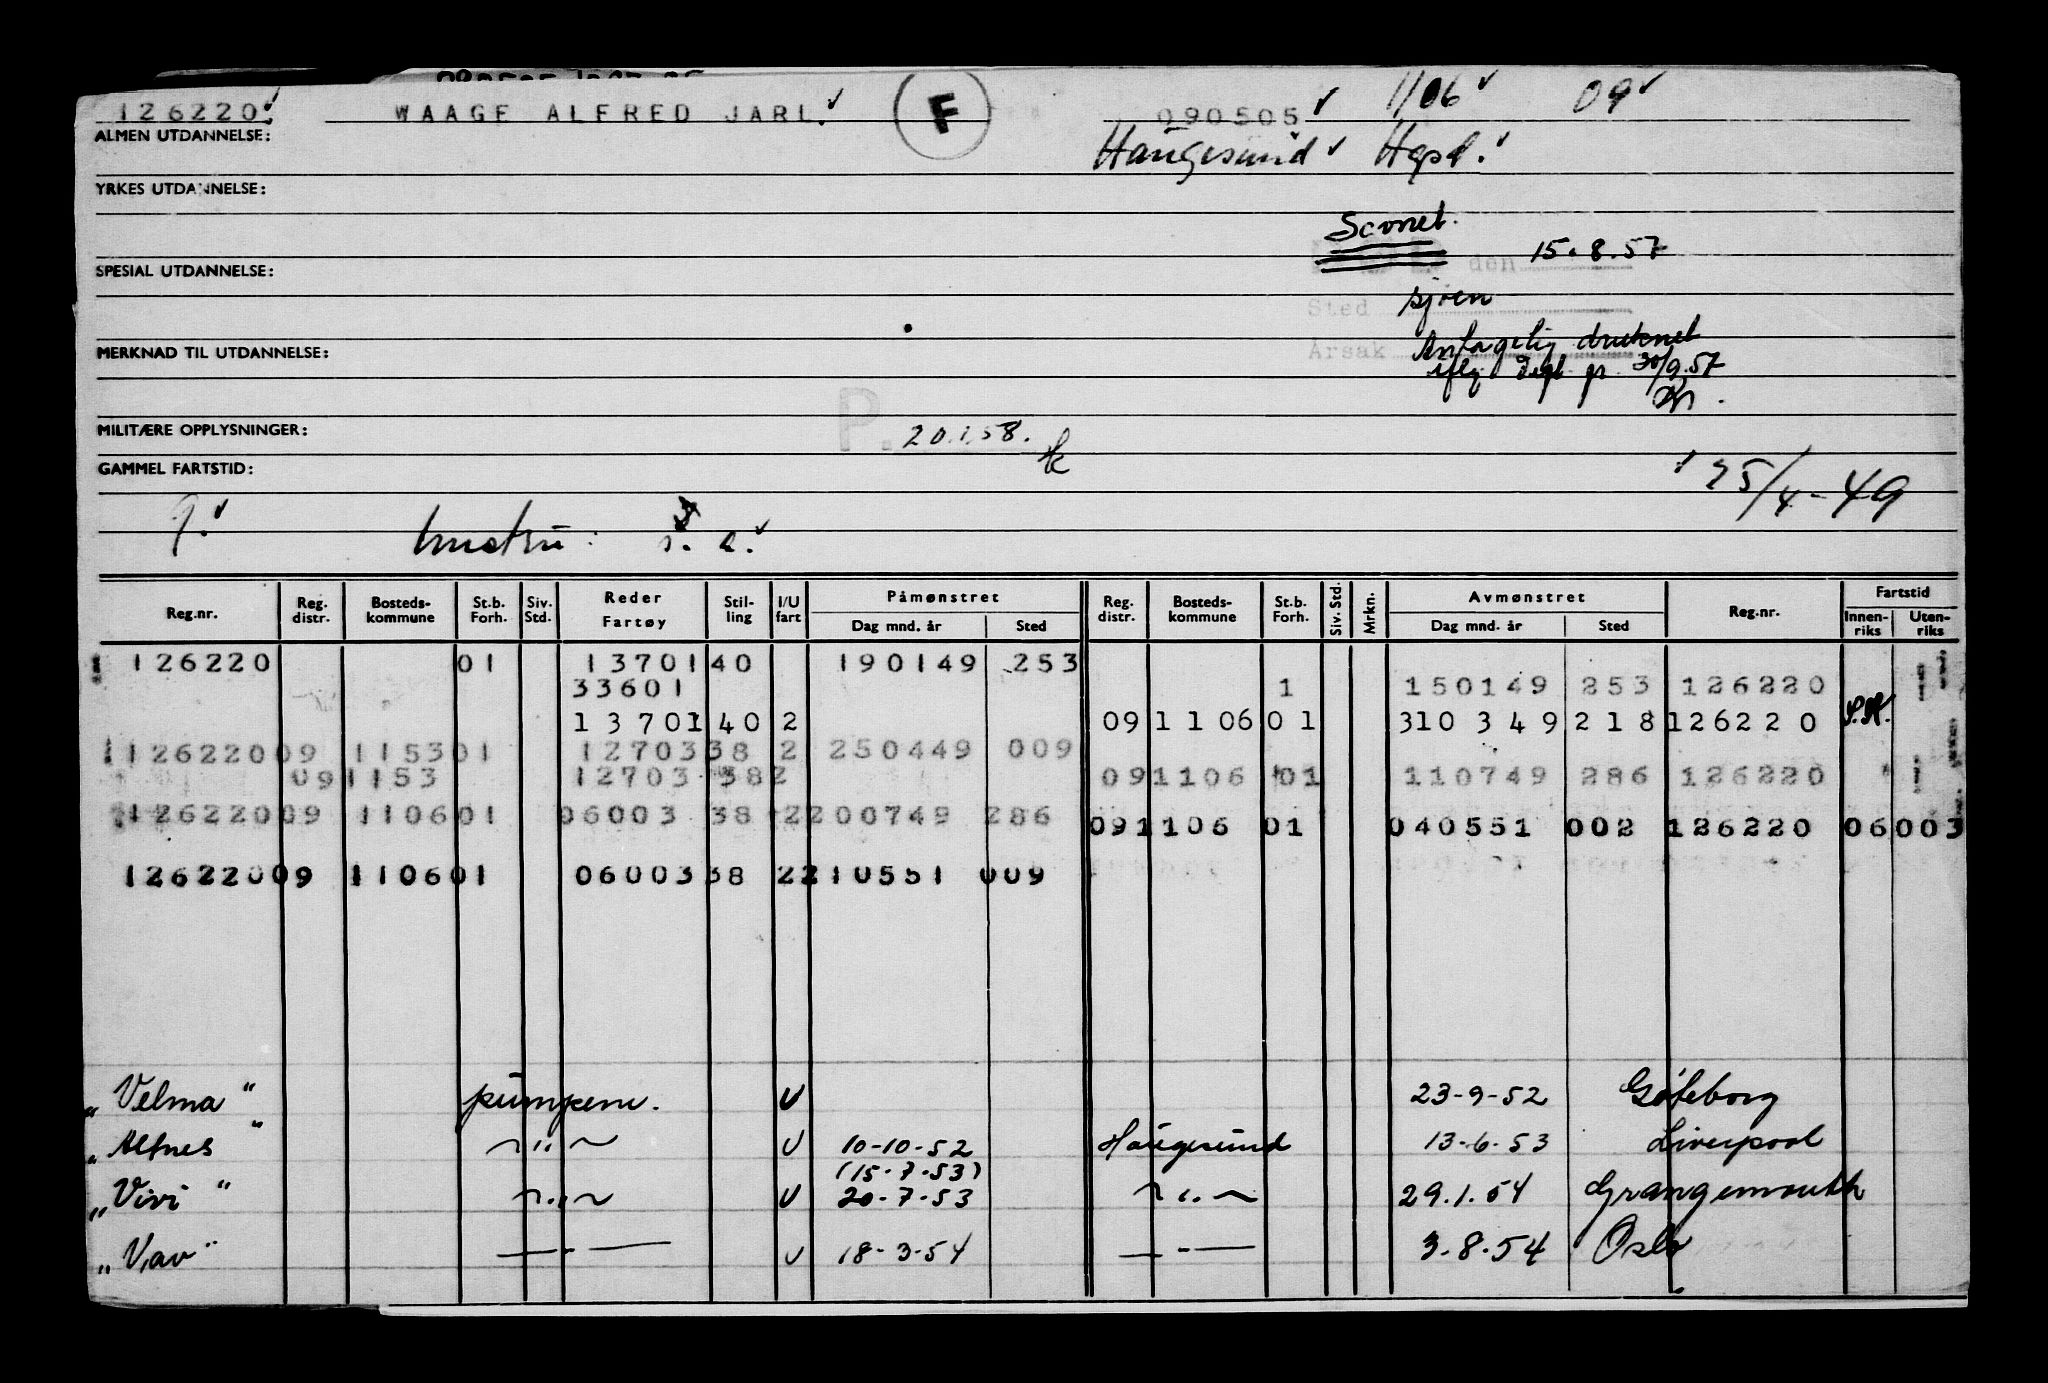 126220. WAAGE ALFRED JARL. F 090505 1106 09
ALMEN UTDANNELSE: Haugesund
YRKES UTDANNELSE:
Savnet.
den 15.8.57
SPESIAL UTDANNELSE:
Sted sjøen
Årsak Antagelig druknet
MERKNAD TIL UTDANNELSE:
iflg 30/9.57
P.
MILITÆRE OPPLYSNINGER: 20.1.58.
GAMMEL FARTSTID:
25/4-49
hustru:
Reg.nr. Reg. distr. Bosteds-kommune St.b. Forh. Siv. Std. Reder Fartøy Stil-ling I/U fart Påmønstret Dag mnd. år Sted Reg. distr. Bosteds-kommune St.b. Forh. Siv. Std. Mrkn. Avmønstret Dag mnd. år Sted Reg.nr. Fartstid Innen-riks Uten-riks
126220 01 13701 40 190149 253
33601 1 150149 253 126220
13701 40 2 09 1106 01 310349 218 126220
126220 09 1153 01 12703 38 2 250449 009
09 1153 12703 38 2 09 1106 01 110749 286 126220
126220 09 1106 01 06003 38 2 200749 286
09 1106 01 040551 002 126220 06003
126220 09 1106 01 06003 38 2 210551 009
„Velma" pumpem. U 23-9-52 Gøteborg
„Alfnes" -"- U 10-10-52 Haugesund 13-6-53 Liverpool
(15-7-53)
„Vivi" -"- U 20-7-53 -"- 29.1.54 Grangemouth
„Vav" — - — U 18-3-54 — - — 3.8.54 Oslo